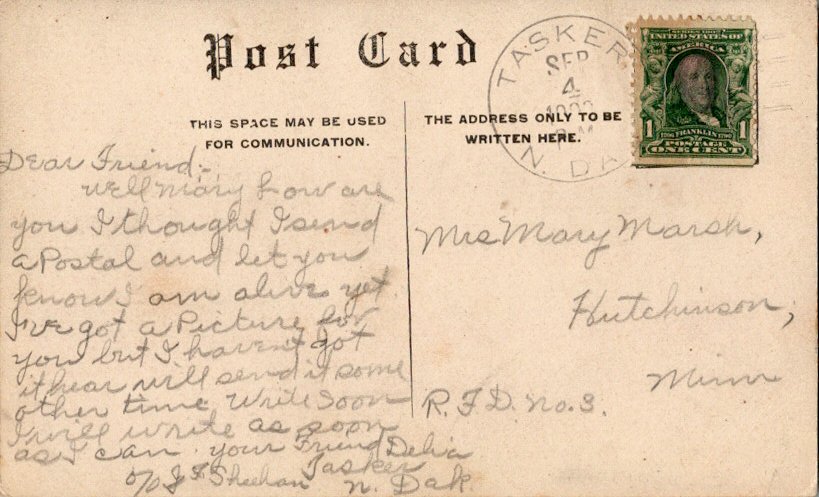 Post Card
THIS SPACE MAY BE USED
FOR COMMUNICATION.
THE ADDRESS ONLY TO BE
WRITTEN HERE.
TASKER
SEP
4
N. DA
SERIES 1902
UNITED STATES OF
AMERICA
1706 FRANKLIN 1790
1 1
POSTAGE
ONE CENT
Dear Friend;-
Well Mary how are
you I thought I send
a Postal and let you
know I am alive yet.
I've got a Picture for
you but I haven't got
it hear will send it some
other time. Write Soon
I will write as soon
as I can. your Friend Delia
Tasker
c/o J F Sheehan N. Dak.
Mrs Mary Marsh,
Hutchinson,
Minn
R. F. D. No. 3.